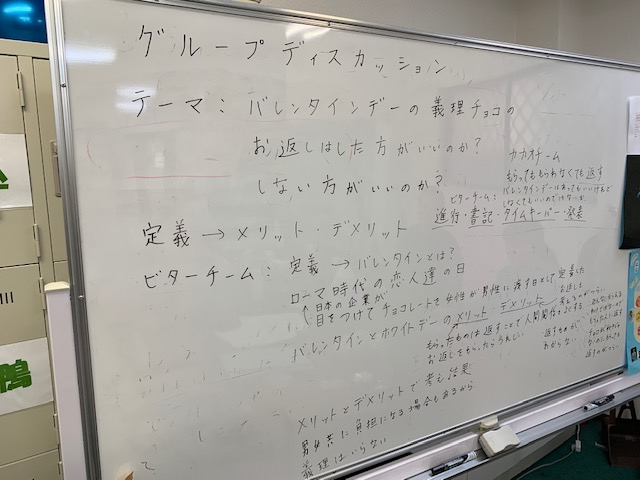 グループディスカッション
テーマ：バレンタインデーの義理チョコの
お返しはした方がいいのか？
しない方がいいのか？
カカオチーム
もらってももらわなくても返す
ビターチーム：バレンタインデーはあってもいいけれど
しなくてもいいのではないか
進行・書記・タイムキーパー・発表
定義→メリット・デメリット
ビターチーム：定義→バレンタインとは？
ローマ時代の恋人達の日
↑日本の企業が
目をつけてチョコレートを女性が男性に渡す日として定着した
バレンタインとホワイトデーのメリット デメリット
もらったものは返すことで人間関係をよくする
お返しをもらったらうれしい
返すものが
わからない
メリットとデメリットで考え結果
男女共に負担になる場合もあるから
義理はいらない
て
鴨